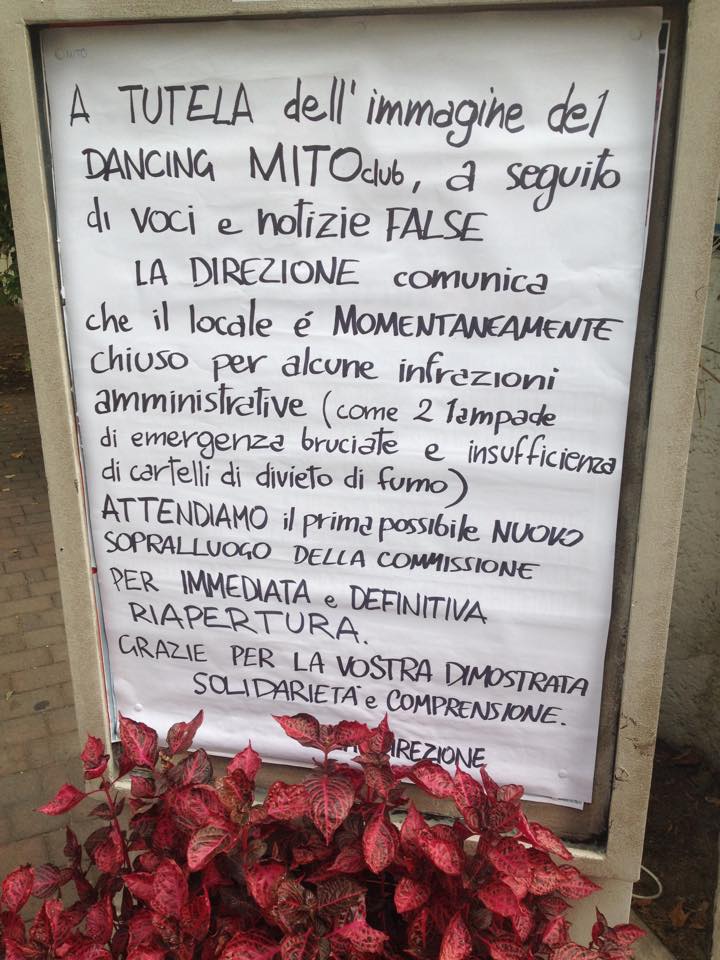 A TUTELA dell'immagine del
DANCING MITOclub, a seguito
di voci e notizie FALSE
LA DIREZIONE comunica
che il locale é MOMENTANEAMENTE
chiuso per alcune infrazioni
amministrative (come 2 lampade
di emergenza bruciate e insufficienza
di cartelli di divieto di fumo)
ATTENDIAMO il prima possibile NUOVO
SOPRALLUOGO DELLA COMMISSIONE
PER IMMEDIATA e DEFINITIVA
RIAPERTURA.
GRAZIE PER LA VOSTRA DIMOSTRATA
SOLIDARIETA' e COMPRENSIONE.
DIREZIONE